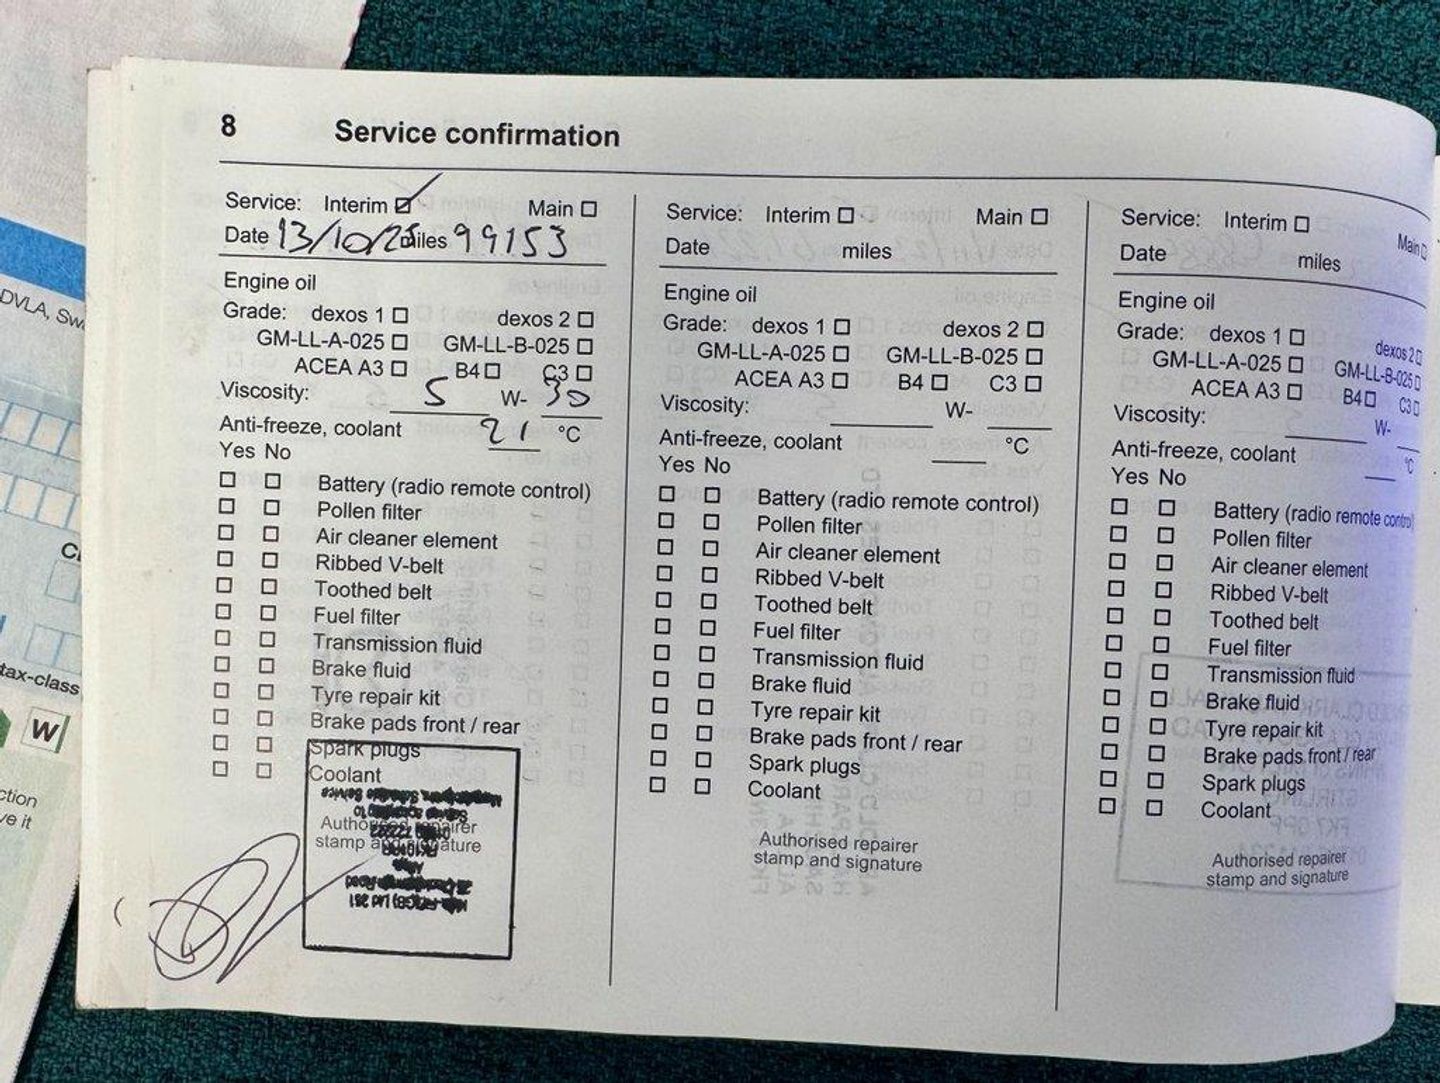 8 Service confirmation
Service: Interim Main
Date 13/10/25 miles 99153
Engine oil
Grade: dexos 1 dexos 2
GM-LL-A-025 GM-LL-B-025
ACEA A3 B4 C3
Viscosity: 5 W- 30
Anti-freeze, coolant 21 °C
Yes No
Battery (radio remote control)
Pollen filter
Air cleaner element
Ribbed V-belt
Toothed belt
Fuel filter
Transmission fluid
Brake fluid
Tyre repair kit
Brake pads front / rear
Spark plugs
Coolant
Authorised repairer
stamp and signature
Service: Interim Main
Date miles
Engine oil
Grade: dexos 1 dexos 2
GM-LL-A-025 GM-LL-B-025
ACEA A3 B4 C3
Viscosity: W-
Anti-freeze, coolant °C
Yes No
Battery (radio remote control)
Pollen filter
Air cleaner element
Ribbed V-belt
Toothed belt
Fuel filter
Transmission fluid
Brake fluid
Tyre repair kit
Brake pads front / rear
Spark plugs
Coolant
Authorised repairer
stamp and signature
Service: Interim Main
Date miles
Engine oil
Grade: dexos 1 dexos 2
GM-LL-A-025 GM-LL-B-025
ACEA A3 B4 C3
Viscosity: W-
Anti-freeze, coolant °C
Yes No
Battery (radio remote control)
Pollen filter
Air cleaner element
Ribbed V-belt
Toothed belt
Fuel filter
Transmission fluid
Brake fluid
Tyre repair kit
Brake pads front / rear
Spark plugs
Coolant
Authorised repairer
stamp and signature
DVLA,
tax-class
W